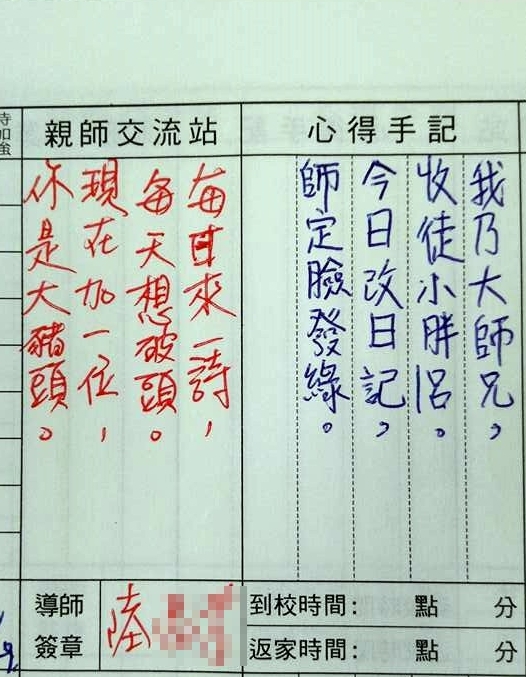 心得手記
我乃大師兄，
收徒小胖呂。
今日改日記，
師定臉發綠。
親師交流站
每日來一詩，
每天想破頭。
現在加一位，
你是大豬頭。
加強
導師
簽章
陸
到校時間: 點 分
返家時間: 點 分